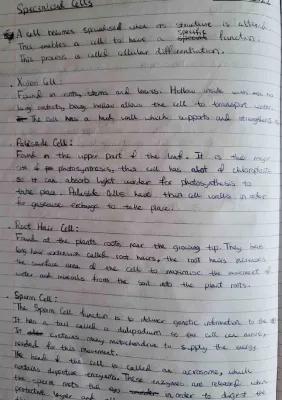 Specialised Cells
A cell becomes specialised when its structure is altered.
This enables a cell to have a specific function.
This process is called cellular differentiation.
Xylem Cell:
Found in roots, stems and leaves. Hollow inside with
being hollow allows the cell to transport water.
The cell has a thick wall which supports and strengthens
Palisade Cell:
Found in the upper part of the leaf. It is the major
site of photosynthesis, this cell has alot of chloroplasts
so it can absorb light easier for photosynthesis to
take place. Palisade Cells have thin cell walls in order
for gaseous exchange to take place.
Root Hair Cell:
Found at the plants roots near the growing tip. They have
long hair extension called root hairs, the root hairs increases
the surface area of the cell to maximise the movement of
water and minerals from the soil into the plant roots.
Sperm Cell:
The Sperm Cell function is to deliver genetic information to the
It has a tail called a so the cell can move,
It contains many mitochondria to supply the energy
needed for this movement.
The head of the cell is called an acrosome, which
contains digestive enzymes. These enzymes are released when
the sperm meets the egg in order to digest the
protective layer and